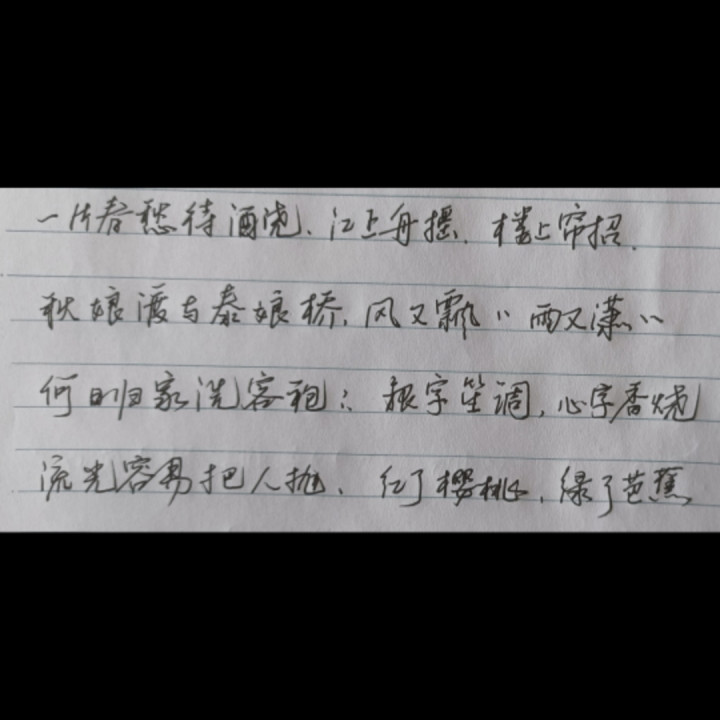 一片春愁待酒浇.江上舟摇.楼上帘招.
秋娘渡与泰娘桥,风又飘〃雨又潇〃
何日归家洗客袍:银字笙调,心字香烧
流光容易把人抛、红了樱桃,绿了芭蕉